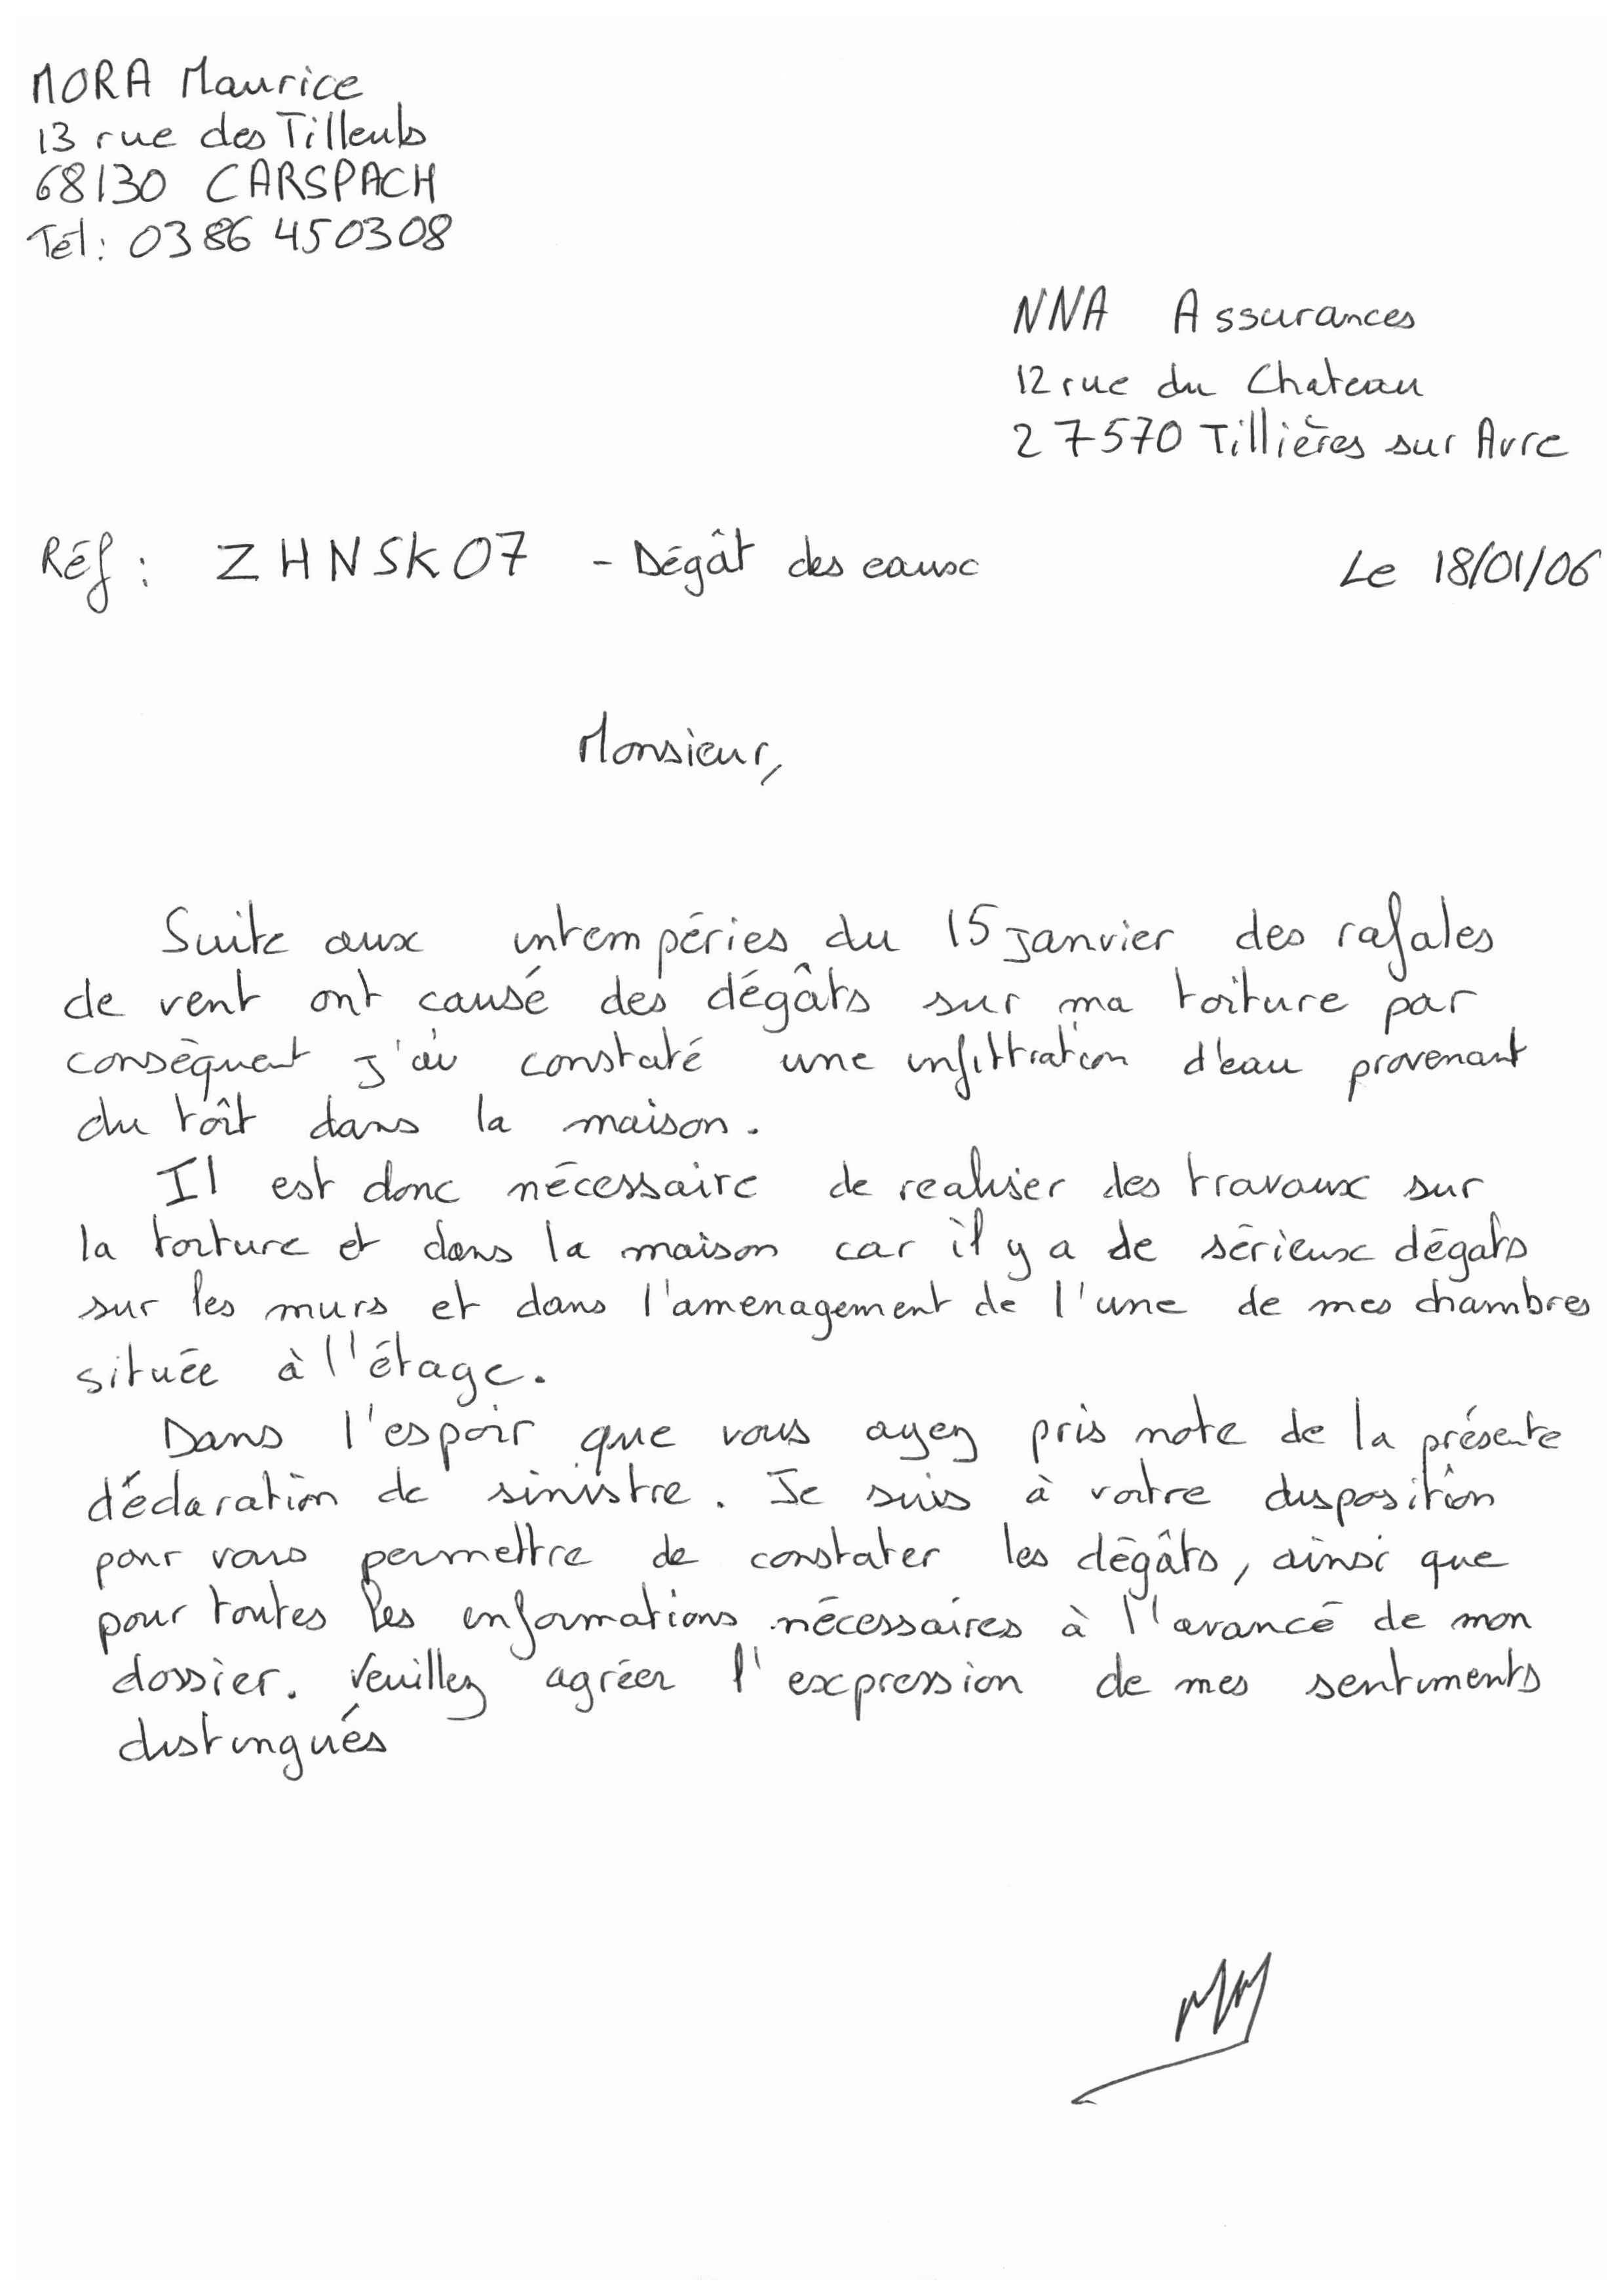 MORA Maurice
13 rue des Tilleuls
68130 CARSPACH
Tél : 03 86 45 03 08
NNA Assurances
12 rue du Chateau
27570 Tillières sur Avre
Réf : ZHNSK07 - Dégât des eaux
Le 18/01/06
Monsieur,
Suite aux intempéries du 15 janvier des rafales
de vent ont causé des dégâts sur ma toiture par
conséquent j'ai constaté une infiltration d'eau provenant
du toît dans la maison.
Il est donc nécessaire de realiser des travaux sur
la toiture et dans la maison car il y a de sérieux dégats
sur les murs et dans l'amenagement de l'une de mes chambres
située à l'étage.
Dans l'espoir que vous ayez pris note de la présente
déclaration de sinistre. Je suis à votre disposition
pour vous permettre de constater les dégâts, ainsi que
pour toutes les informations nécessaires à l'avancé de mon
dossier. Veuillez agréer l'expression de mes sentiments
distingués